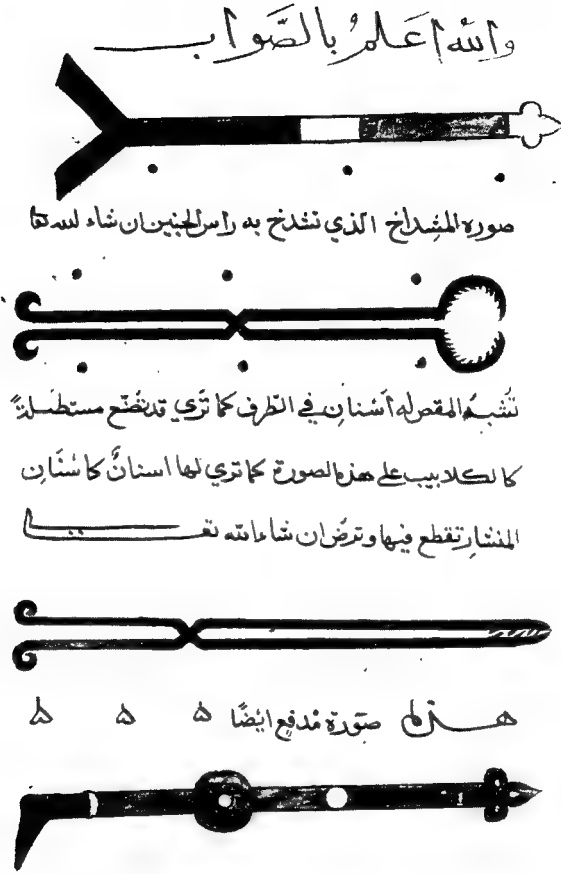 والله اعلم بالصَّواب
صورة المشداخ الذي تشدخ به راس الجنين ان شاء لله ها
تُشبهُ المقص له أسْنان في الطرف كما تَرَي قد تُصْنَع مستطيلةً
كالكلاليب على هذه الصورة كما تري لها اسنانٌ كاسْنَانِ
المنشار تقطع فيها وترض ان شاء الله تعــــالى
هــذه صورة مدفع ايضًا ه ه ه